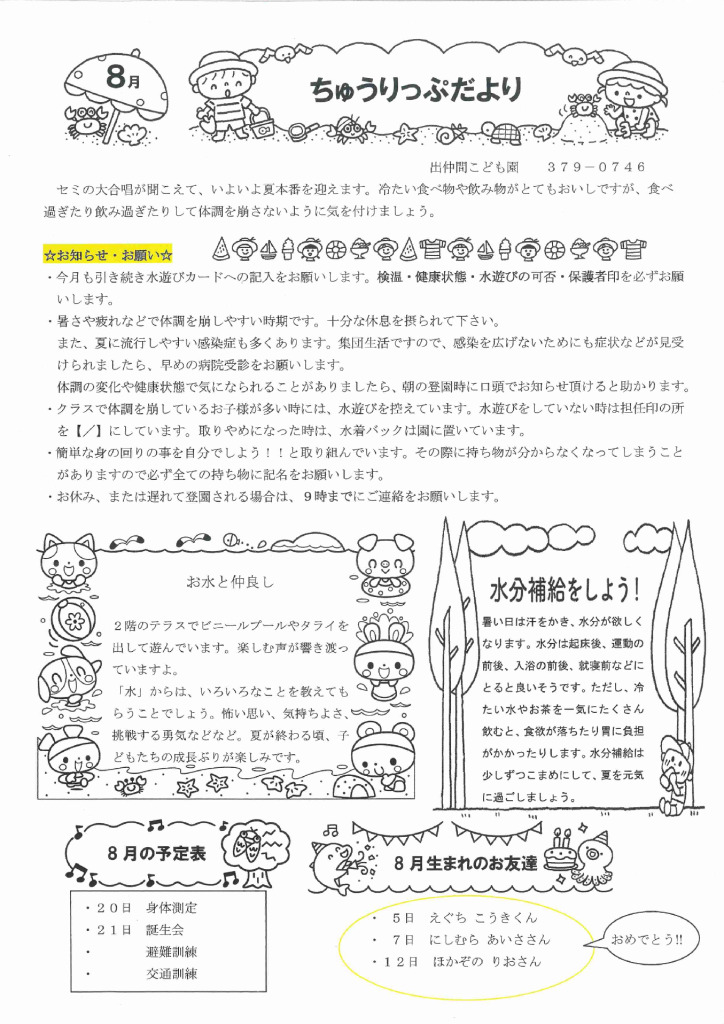 8月
ちゅうりっぷだより
出仲間こども園　３７９－０７４６
セミの大合唱が聞こえて、いよいよ夏本番を迎えます。冷たい食べ物や飲み物がとてもおいしですが、食べ
過ぎたり飲み過ぎたりして体調を崩さないように気を付けましょう。
☆お知らせ・お願い☆
・今月も引き続き水遊びカードへの記入をお願いします。検温・健康状態・水遊びの可否・保護者印を必ずお願
いします。
・暑さや疲れなどで体調を崩しやすい時期です。十分な休息を摂られて下さい。
また、夏に流行しやすい感染症も多くあります。集団生活ですので、感染を広げないためにも症状などが見受
けられましたら、早めの病院受診をお願いします。
体調の変化や健康状態で気になられることがありましたら、朝の登園時に口頭でお知らせ頂けると助かります。
・クラスで体調を崩しているお子様が多い時には、水遊びを控えています。水遊びをしていない時は担任印の所
を【／】にしています。取りやめになった時は、水着バックは園に置いています。
・簡単な身の回りの事を自分でしよう！！と取り組んでいます。その際に持ち物が分からなくなってしまうこと
がありますので必ず全ての持ち物に記名をお願いします。
・お休み、または遅れて登園される場合は、９時までにご連絡をお願いします。
お水と仲良し
２階のテラスでビニールプールやタライを
出して遊んでいます。楽しむ声が響き渡っ
ていますよ。
「水」からは、いろいろなことを教えても
らうことでしょう。怖い思い、気持ちよさ、
挑戦する勇気などなど。夏が終わる頃、子
どもたちの成長ぶりが楽しみです。
水分補給をしよう！
暑い日は汗をかき、水分が欲しく
なります。水分は起床後、運動の
前後、入浴の前後、就寝前などに
とると良いそうです。ただし、冷
たい水やお茶を一気にたくさん
飲むと、食欲が落ちたり胃に負担
がかかったりします。水分補給は
少しずつこまめにして、夏を元気
に過ごしましょう。
８月の予定表
・２０日　身体測定
・２１日　誕生会
・　　　　避難訓練
・　　　　交通訓練
８月生まれのお友達
・　５日　えぐち こうきくん
・　７日　にしむら あいささん
・１２日　ほかぞの りおさん
おめでとう!!